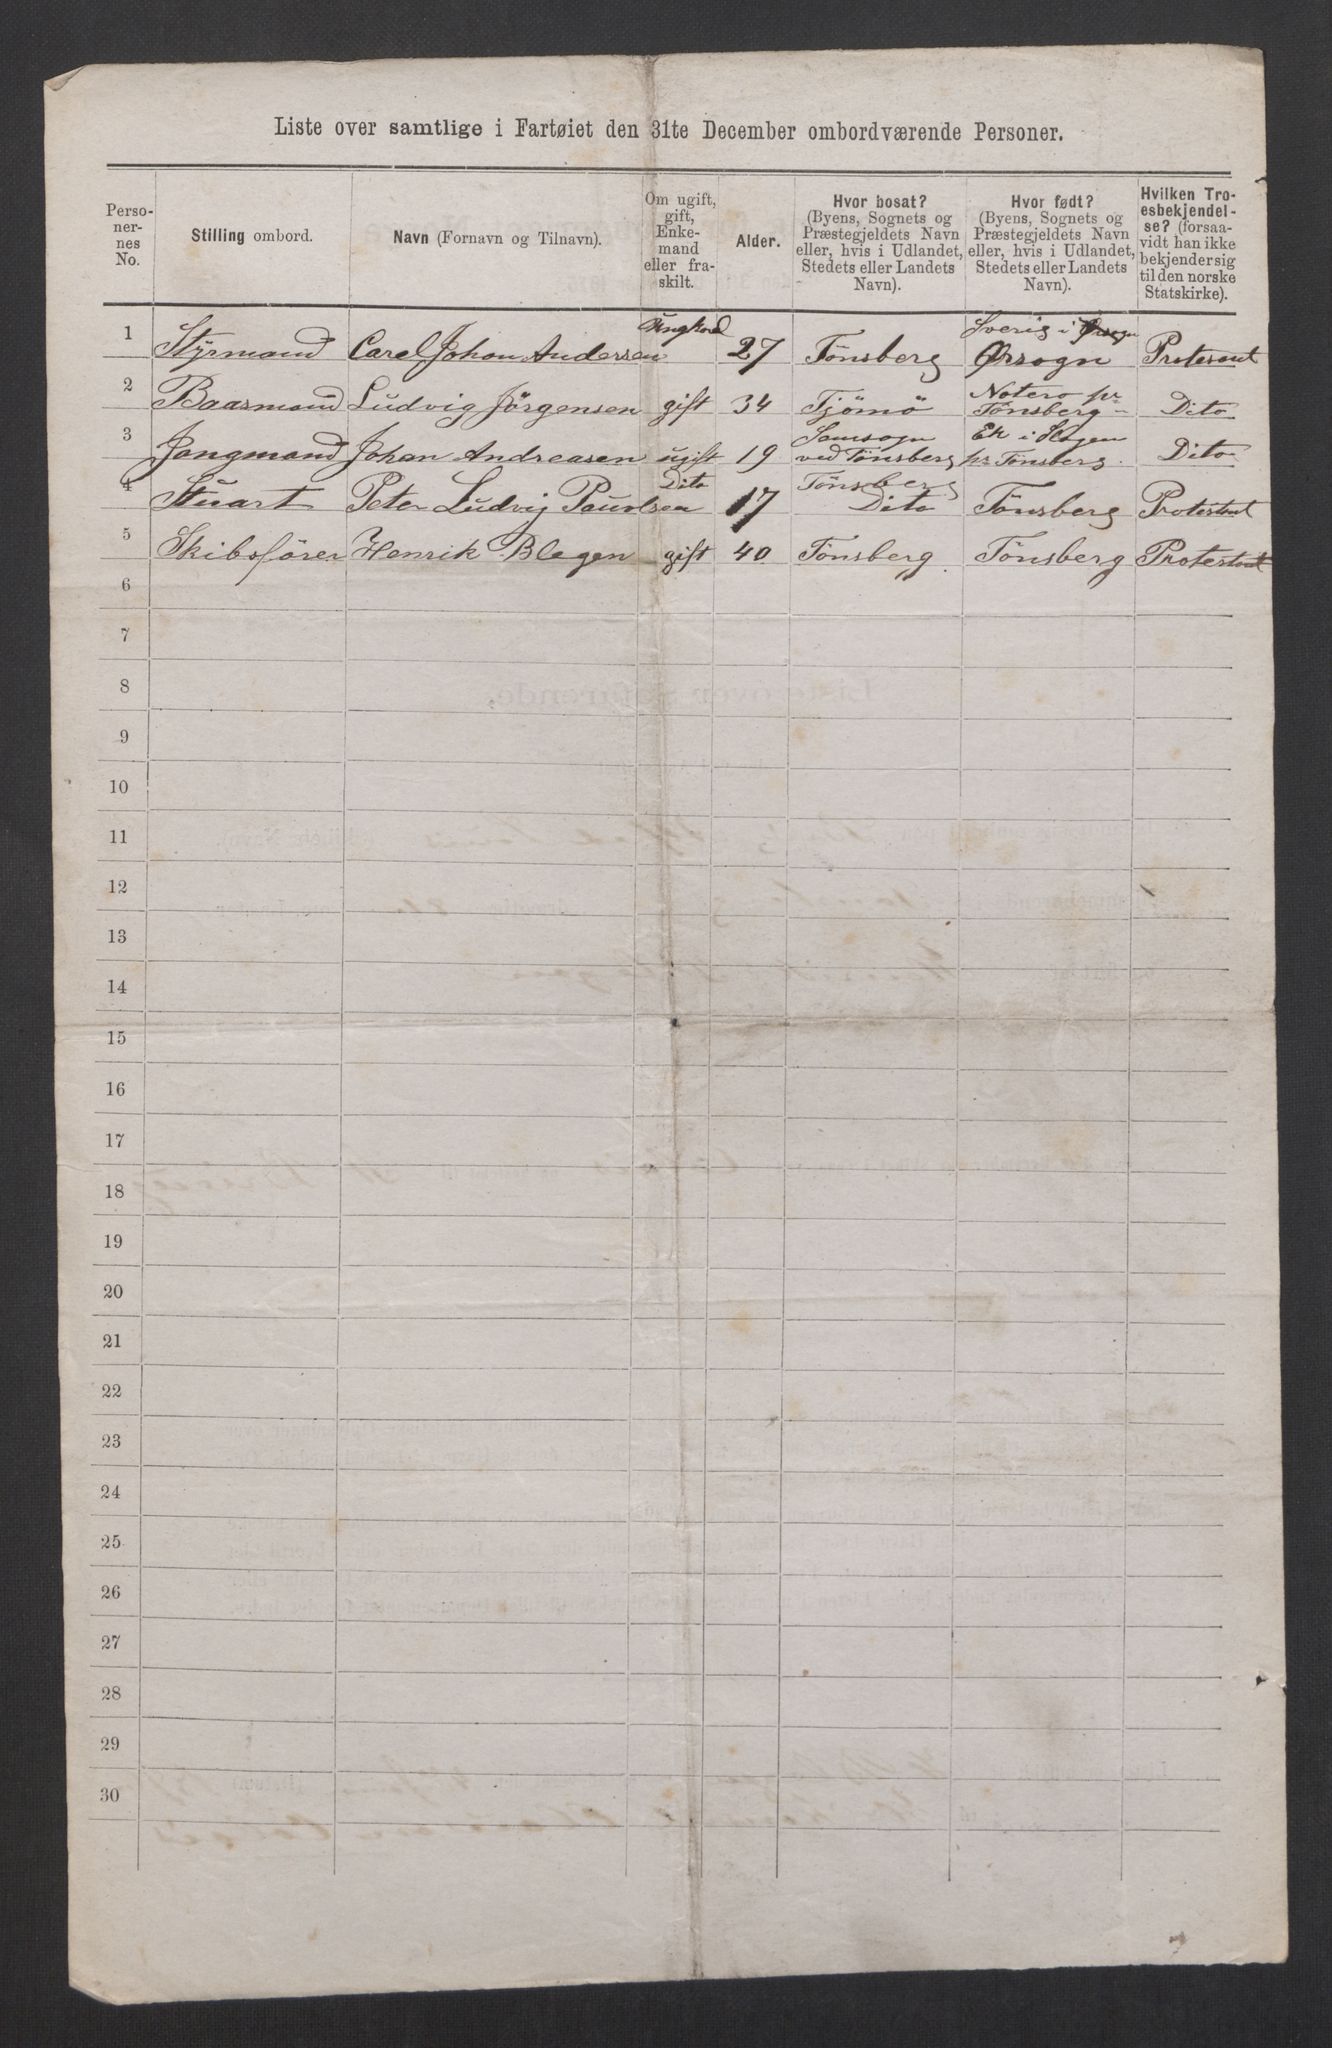 Liste over samtlige i Fartøiet den 31te December ombordværende Personer.
Perso-
ner-
nes
No.
Stilling ombord.
Navn (Fornavn og Tilnavn).
Om ugift,
gift,
Enke-
mand
eller fra-
skilt.
Alder.
Hvor bosat?
(Byens, Sognets og
Præstegjeldets Navn
eller, hvis i Udlandet,
Stedets eller Landets
Navn).
Hvor født?
(Byens, Sognets og
Præstegjeldets Navn
eller, hvis i Udlandet,
Stedets eller Landets
Navn).
Hvilken Tro-
esbekjendel-
se? (forsaa-
vidt han ikke
bekjender sig
til den norske
Statskirke).
1 Styrmand Carel Johan Anderssen Ungkarl 27 Tönsberg Sverig i
Ørsogn Protestant
2 Baasmand Ludvig Jörgensen gift 34 Tjömö Notero pr
Tönsberg Dito
3 Jongmand Johan Andreasen ugift 19 Semsogn
ved Tönsberg Ek i Slagen
pr Tönsberg. Dito
4 Stuart Peter Ludvig Paulsen Dito 17 Tönsberg
Dito Tönsberg Protestant
5 Skibsförer Henrik Blegen gift 40 Tönsberg Tönsberg Protestant
6
7
8
9
10
11
12
13
14
15
16
17
18
19
20
21
22
23
24
25
26
27
28
29
30